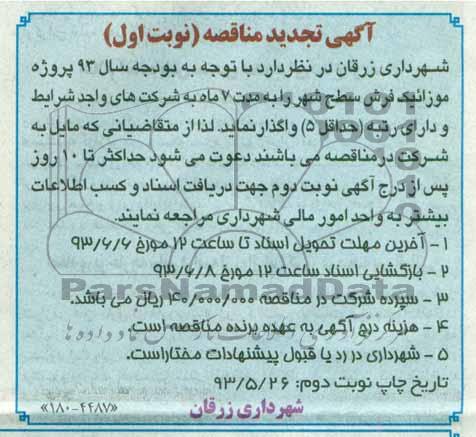 آگهی تجدید مناقصه (نوبت اول)
شهرداری زرقان در نظر دارد با توجه به بودجه سال ۹۳ پروژه
موزائیک فرش سطح شهر را به مدت ۷ ماه به شرکت های واجد شرایط
و دارای رتبه (حداقل ۵) واگذار نماید. لذا از متقاضیانی که مایل به
شرکت در مناقصه می باشند دعوت می شود حداکثر تا ۱۰ روز
پس از درج آگهی نوبت دوم جهت دریافت اسناد و کسب اطلاعات
بیشتر به واحد امور مالی شهرداری مراجعه نمایند.
۱- آخرین مهلت تحویل اسناد تا ساعت ۱۲ مورخ ۹۳/۶/۶
۲- بازگشایی اسناد ساعت ۱۲ مورخ ۹۳/۶/۸
ParsNamadData
۳- سپرده شرکت در مناقصه ۴۰/۰۰۰/۰۰۰ ریال می باشد.
۴- هزینه درج آگهی به عهده برنده مناقصه است.
۵- شهرداری در رد یا قبول پیشنهادات مختار است.
تاریخ چاپ نوبت دوم: ۹۳/۵/۲۶
شهرداری زرقان
«۱۸۰-۴۴۸۷»